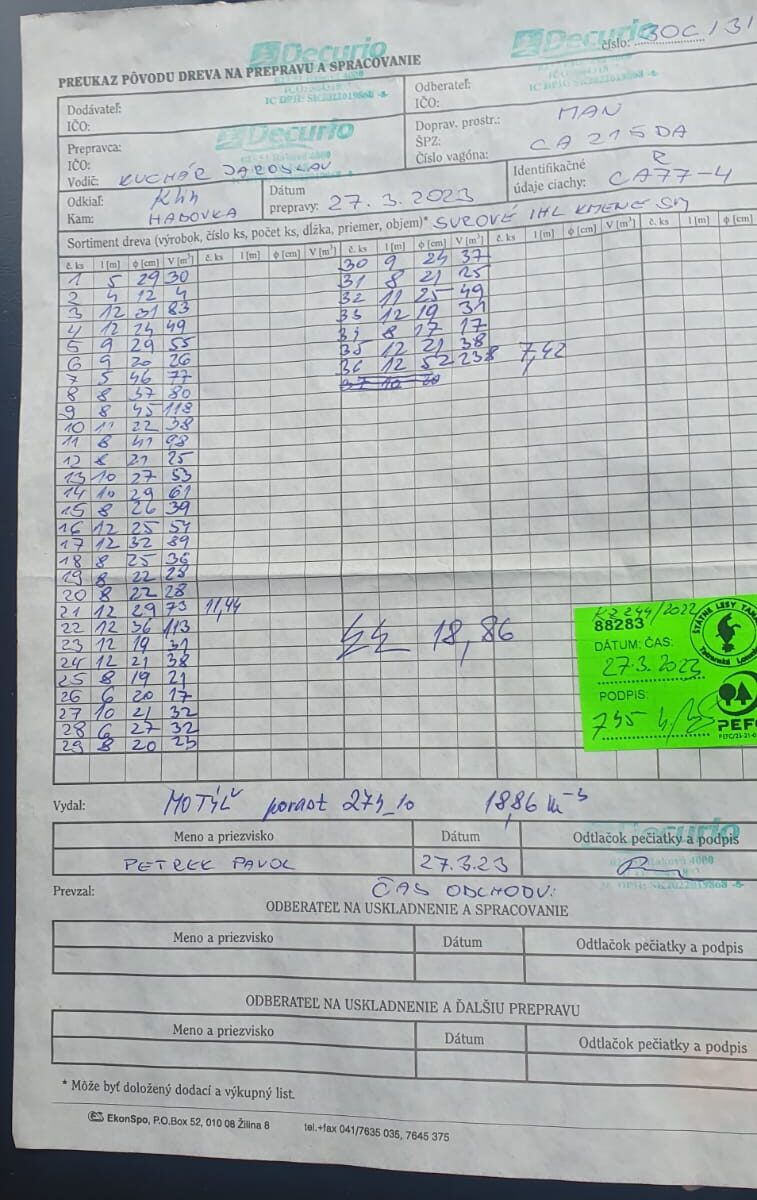 Decurio
Decurio
číslo: 30C/31
PREUKAZ PÔVODU DREVA NA PREPRAVU A SPRACOVANIE
Dodávateľ:
IČO:
Odberateľ:
IČO:
Prepravca: Decurio
IČO:
Vodič: KUCHÁR JAROSLAV
Doprav. prostr.: MAN
ŠPZ: CA 215 DA
Číslo vagóna: R
Odkiaľ:
Kam: HADOVKA
Dátum
prepravy: 27. 3. 2023
Identifikačné
údaje ciachy: CA77-4
Sortiment dreva (výrobok, číslo ks, počet ks, dĺžka, priemer, objem)* SUROVÉ IHL KMENE
č. ks l [m] ϕ [cm] V [m³] č. ks l [m] ϕ [cm] V [m³] č. ks l [m] ϕ [cm] V [m³] č. ks l [m] ϕ [cm] V [m³] č. ks l [m] ϕ [cm]
1 5 29 30
2 4 12 4
3 12 31 83
4 12 24 49
5 9 29 55
6 9 20 26
7 5 46 77
8 8 37 80
9 8 45 118
10 11 22 38
11 8 41 98
12 8 21 25
13 10 27 53
14 10 29 61
15 8 26 39
16 12 25 54
17 12 32 89
18 8 25 36
19 8 22 28
20 8 22 28
21 12 29 73 11,44
22 12 36 113
23 12 19 31
24 12 21 38
25 8 19 21
26 6 20 17
27 10 21 32
28 6 27 32
29 8 20 23
30 9 24 37
31 8 21 25
32 11 25 49
33 12 19 31
34 8 17 17
35 12 21 38
36 12 52 238 7,42
37 10 20
18,86
KZ 244/2022
88283
DÁTUM: ČAS:
27.3.2023
PODPIS:
745
ŠTÁTNE LESY
PEFC
Vydal: MOTÝĽ porast 274_10 18,86 m-3
Meno a priezvisko Dátum Odtlačok pečiatky a podpis
PETREK PAVOL 27.3.23
Decurio
Prevzal: ČAS ODCHODU:
ODBERATEĽ NA USKLADNENIE A SPRACOVANIE
Meno a priezvisko Dátum Odtlačok pečiatky a podpis
ODBERATEĽ NA USKLADNENIE A ĎALŠIU PREPRAVU
Meno a priezvisko Dátum Odtlačok pečiatky a podpis
* Môže byť doložený dodací a výkupný list.
EkonSpo, P.O.Box 52, 010 08 Žilina 8 tel.+fax 041/7635 035, 7645 375